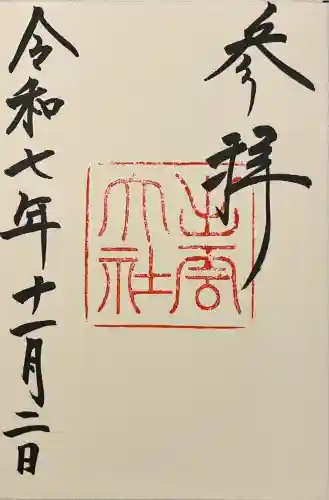 参拝
出雲
大社
令和七年十一月二日